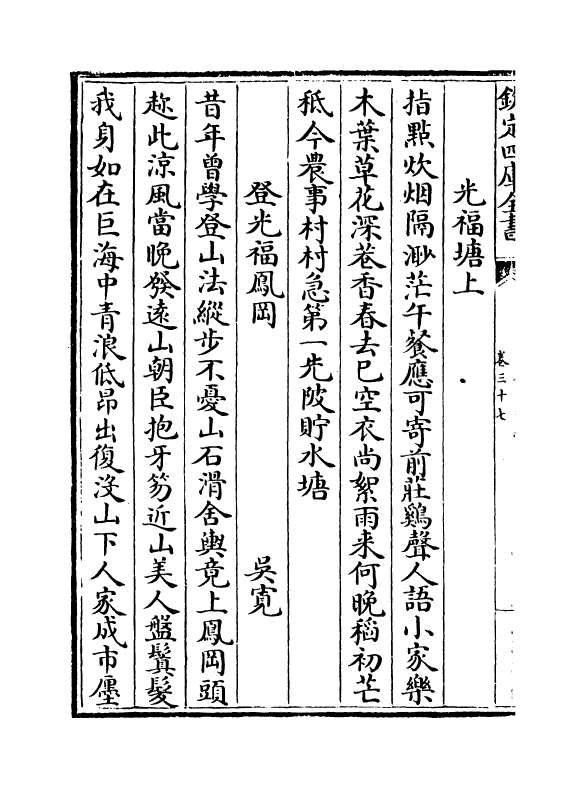 欽定四庫全書
卷三十七
光福塘上
指點炊烟隔渺茫午餐應可寄前莊鷄聲人語小家樂
木葉草花深巷香春去已空衣尚絮雨来何晚稻初芒
秪今農事村村急第一先陂貯水塘
登光福鳳岡　吳寛
昔年曾學登山法縱步不憂山石滑舍輿竟上鳳岡頭
趂此涼風當晚發逺山朝臣抱牙笏近山美人盤鬒髮
我身如在巨海中青浪低昂出復没山下人家成市廛